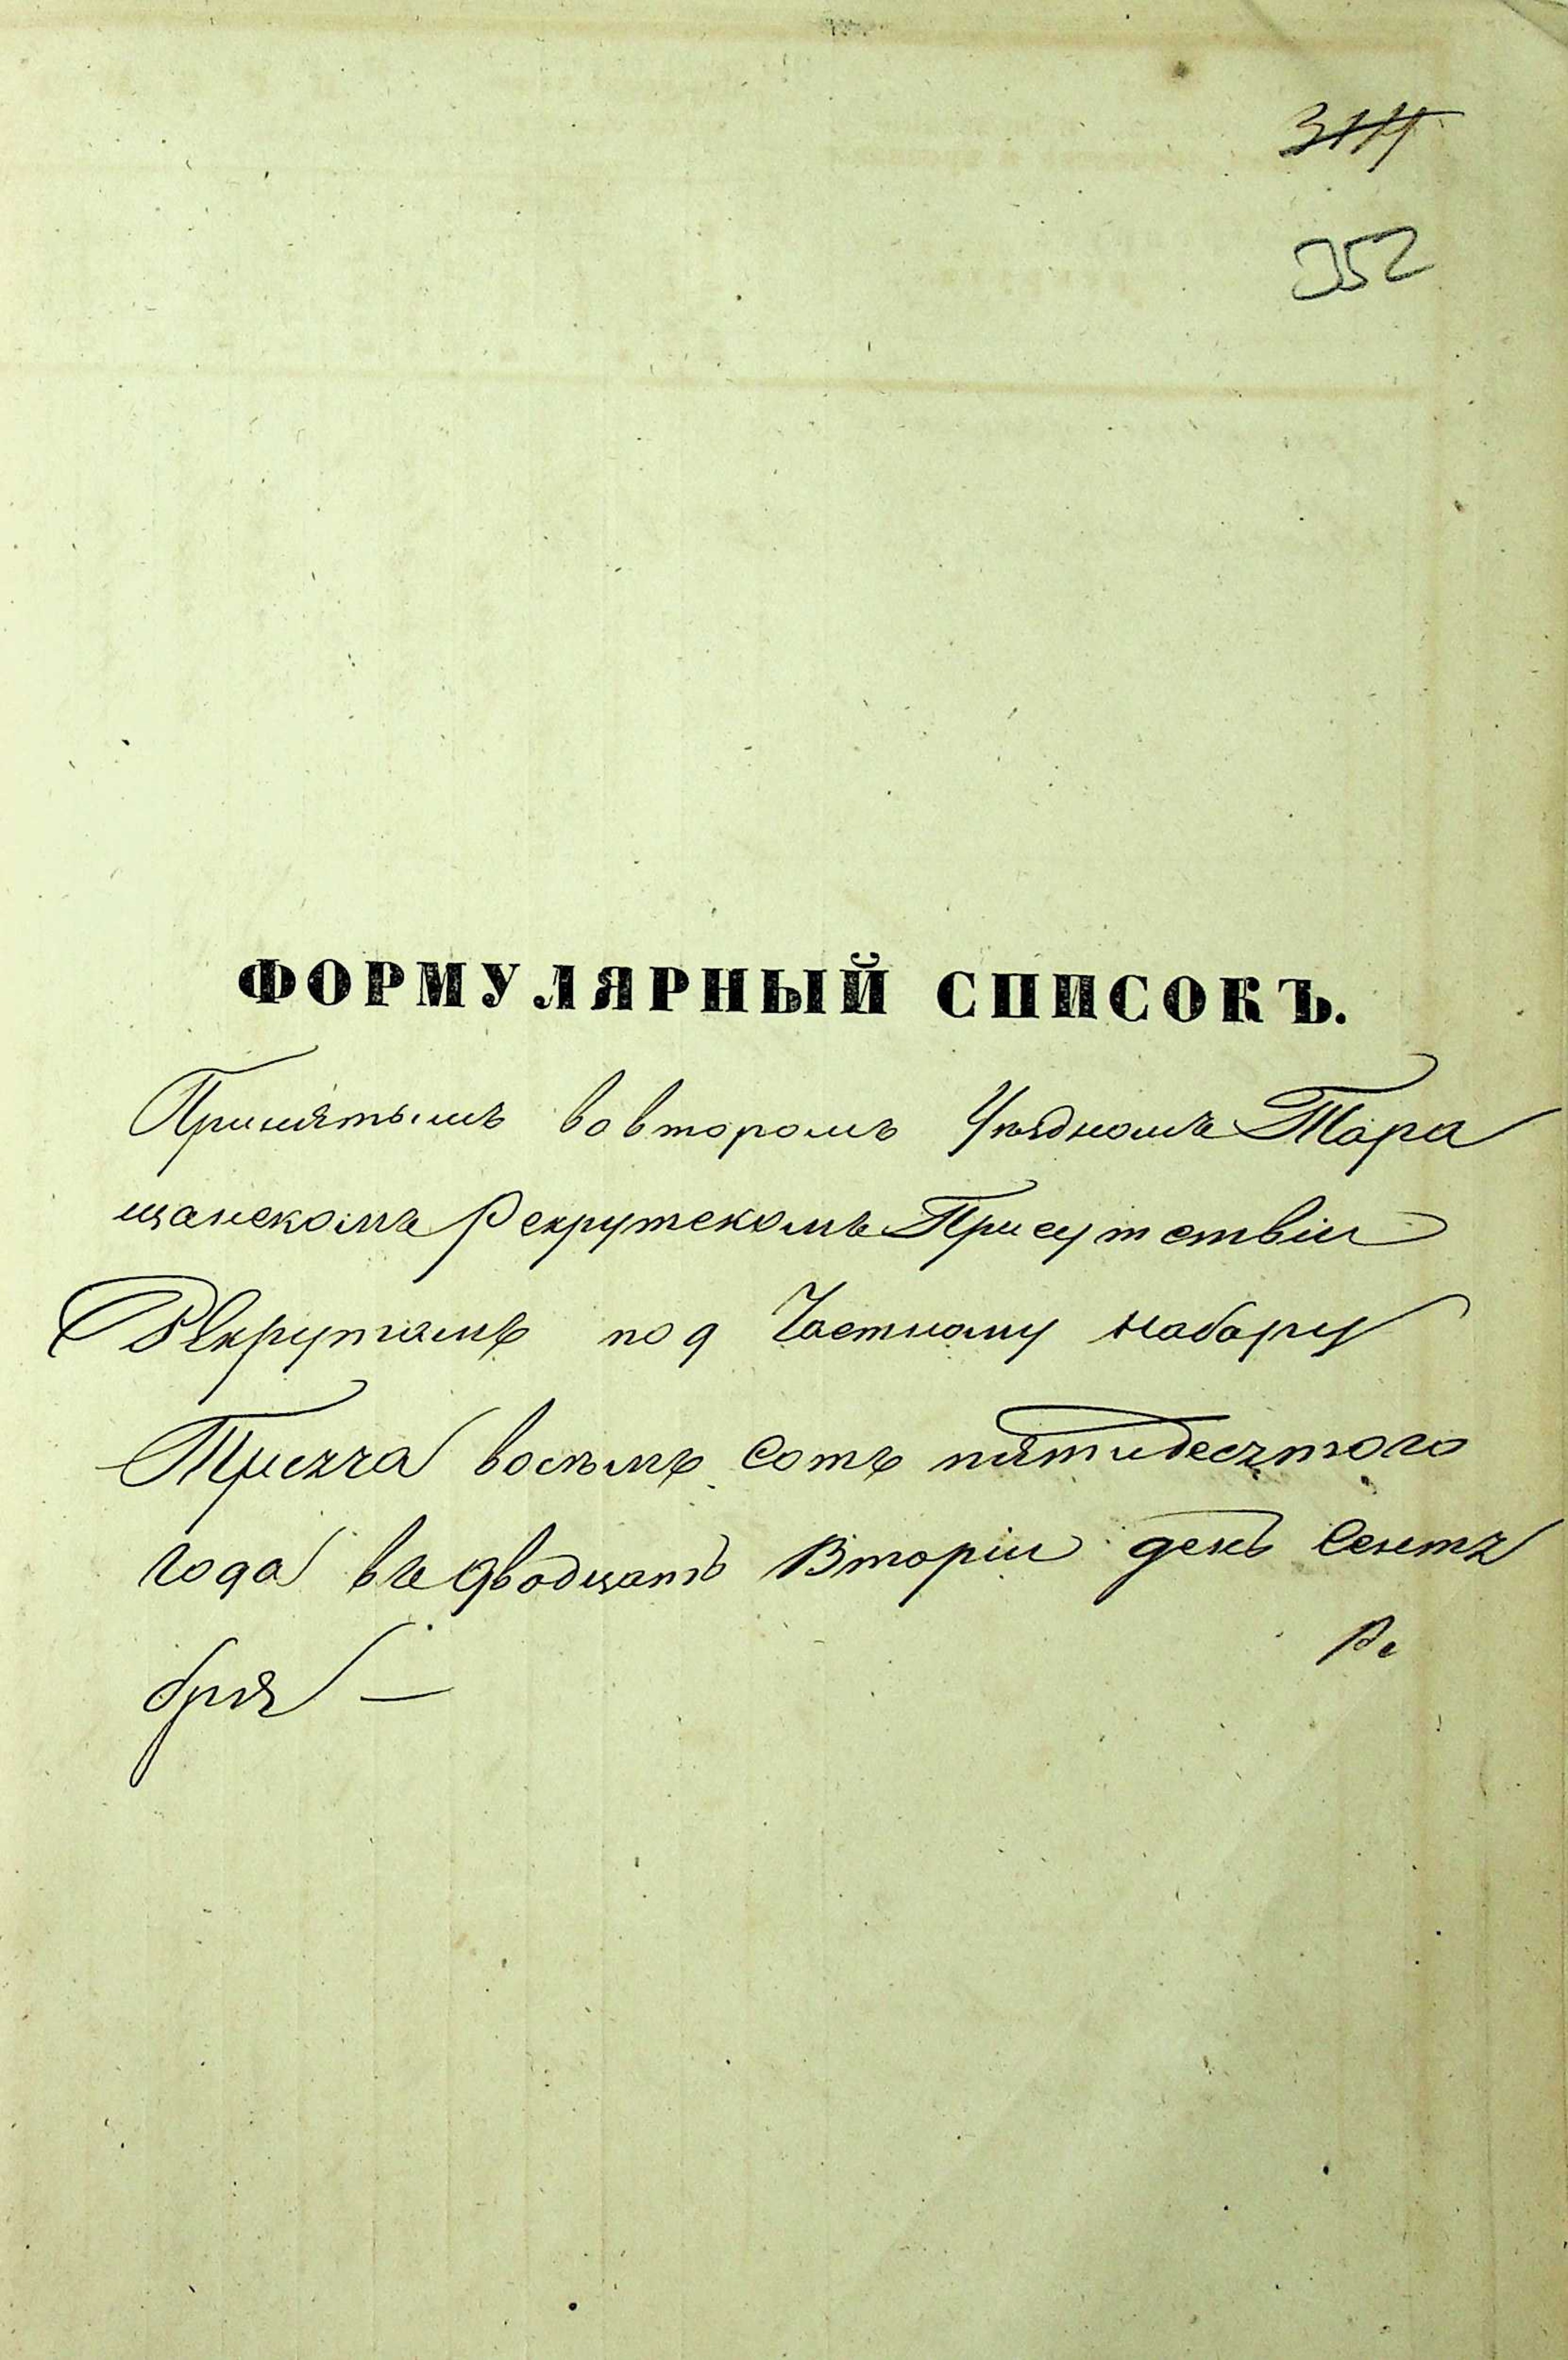 352
ФОРМУЛЯРНЫЙ СПИСОКЪ.
Принятымъ во второмъ Уѣздномъ Тара
щанскомъ Рекрутскомъ Присутствіи
Рекрутамъ по 9 Частному набору
Тысяча восѣмъ сотъ пятидесятого
года въ двадцать Вторіи день Сентя
бря —